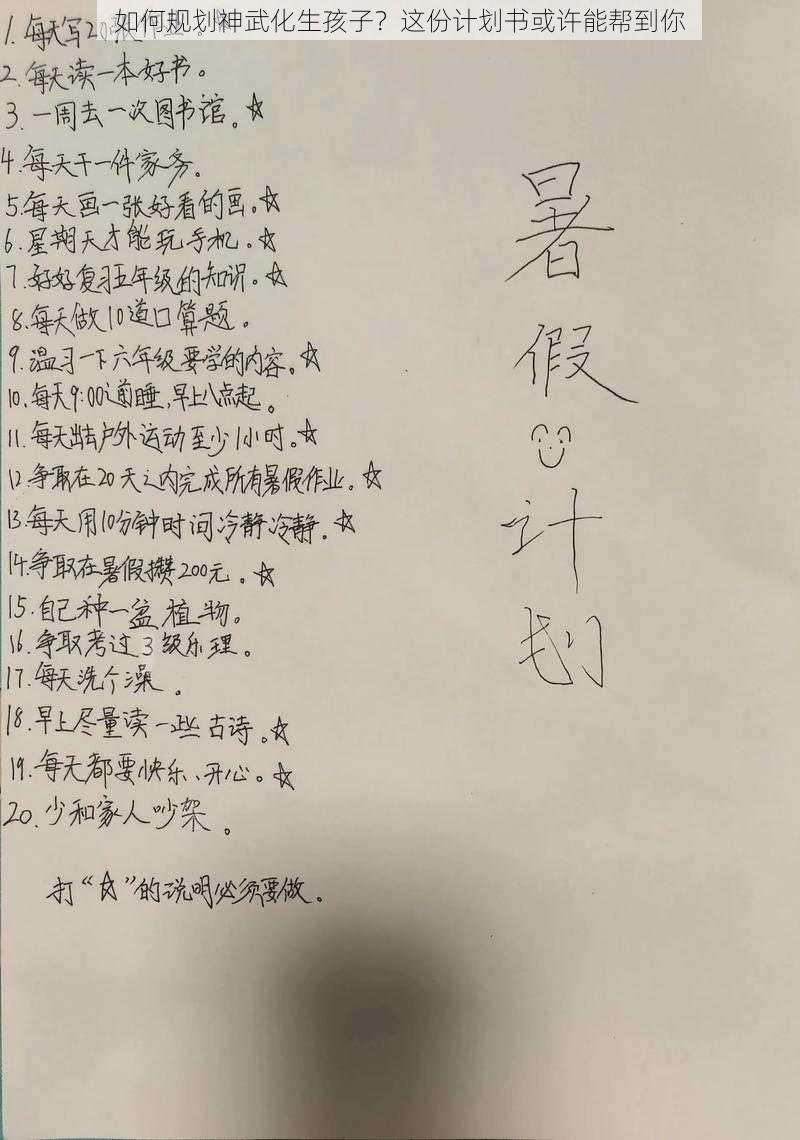 如何规划神武化生孩子？这份计划书或许能帮到你
1.每天写20
2.每天读一本好书。
3.一周去一次图书馆。☆
4.每天干一件家务。
5.每天画一张好看的画。☆
6.星期天才能玩手机。☆
7.好好复习五年级的知识。☆
8.每天做10道口算题。
9.温习一下六年级要学的内容。☆
10.每天9:00之前睡,早上八点起。
11.每天出去户外运动至少1小时。☆
12.争取在20天之内完成所有暑假作业。☆
13.每天用10分钟时间冷静冷静。☆
14.争取在暑假攒200元。☆
15.自己种一盆植物。
16.争取考过3级乐理。
17.每天洗个澡。
18.早上尽量读一些古诗。☆
19.每天都要快乐、开心。☆
20.少和家人吵架。
打“☆”的说明必须要做。
暑假计划